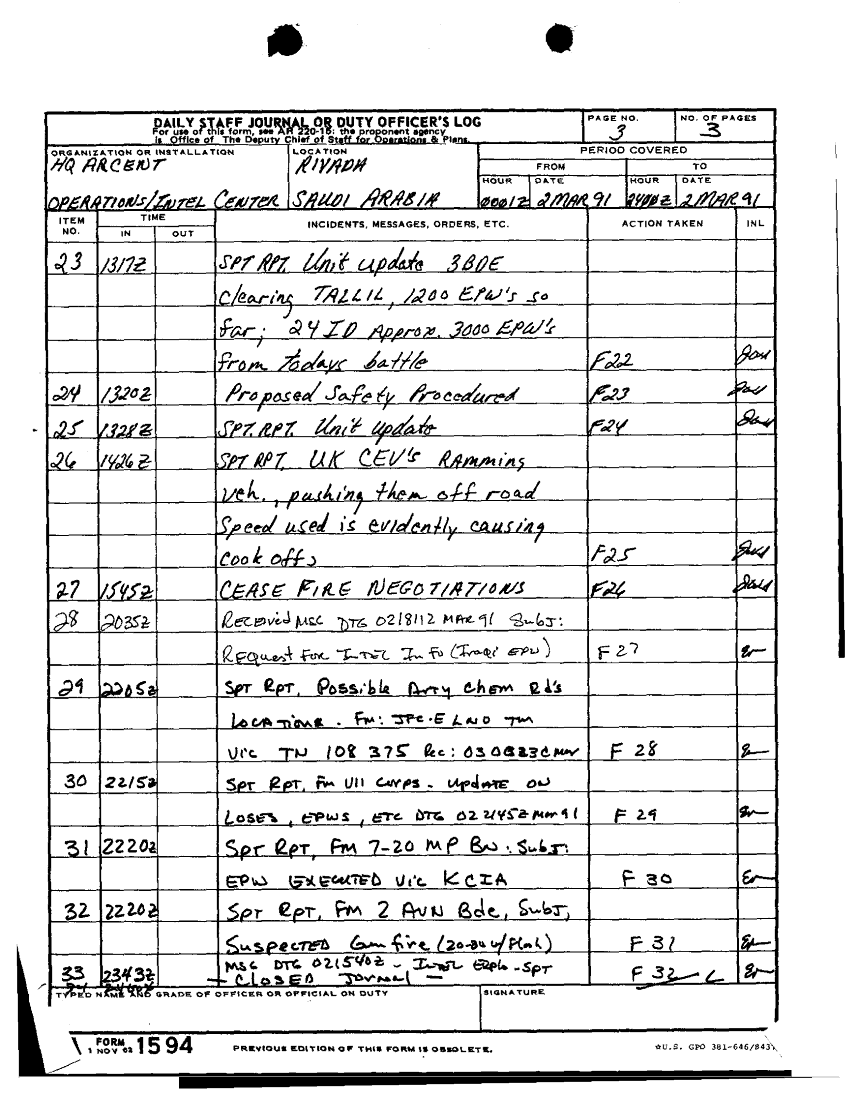 DAILY STAFF JOURNAL OR DUTY OFFICER'S LOG
For use of this form, see AR 220-15; the proponent agency
is Office of The Deputy Chief of Staff for Operations & Plans.
PAGE NO.
3
NO. OF PAGES
3
ORGANIZATION OR INSTALLATION
HQ ARCENT
OPERATIONS/INTEL CENTER
LOCATION
RIYADH
SAUDI ARABIA
PERIOD COVERED
FROM TO
HOUR DATE HOUR DATE
0001Z 2 MAR 91 2400Z 2 MAR 91
ITEM NO. TIME IN OUT INCIDENTS, MESSAGES, ORDERS, ETC. ACTION TAKEN INL
23 1317Z SPT RPT. Unit update 3BDE
Clearing TALLIL, 1200 EPW's so
far; 24 ID Approx. 3000 EPW's
from todays battle F22
24 1320Z Proposed Safety Procedured F23
25 1328Z SPT. RPT. Unit update F24
26 1426Z SPT RPT. UK CEV's RAMMING
veh., pushing them off road
Speed used is evidently causing
cook offs F25
27 1545Z CEASE FIRE NEGOTIATIONS F26
28 2035Z Received MSC DTG 021811Z MAR 91 Subj:
Request for Intel Info (Iraqi EPW) F27
29 2205Z Spt Rpt, Possible Arty Chem Rd's
Locations. Fm: JFC-E LNO TM
Vic TN 108 375 Rec: F 28
30 2215Z Spt Rpt, Fm VII Corps - update on
Loses, EPWs, ETC DTG 022145Z Mar 91 F 29
31 2220Z Spt Rpt, Fm 7-20 MP Bn: Subj:
EPW EXECUTED Vic KCIA F 30
32 2220Z Spt Rpt, Fm 2 AVN Bde, Subj,
Suspected F 31
33 2343Z MSC DTG 021540Z - Intel - Spt F 32
— CLOSED JORNAL —
TYPED NAME AND GRADE OF OFFICER OR OFFICIAL ON DUTY
SIGNATURE
FORM 1 NOV 62 1594
PREVIOUS EDITION OF THIS FORM IS OBSOLETE.
☆U.S. GPO 381-646/843